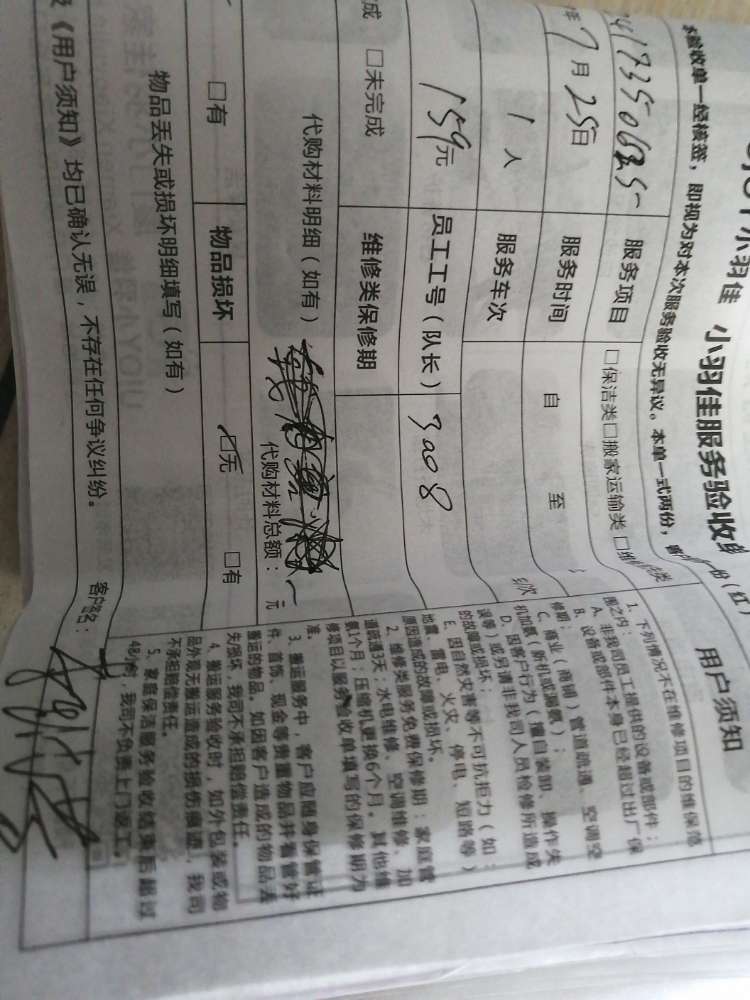 小羽佳 小羽佳服务验收
本验收单一经核签，即视为对本次服务验收无异议。本单一式两份，
服务项目 □保洁类□搬家运输类
7月25日 服务时间 自 至
1人 服务车次
159元 员工工号（队长） 3008
成 □未完成 维修类保修期
代购材料明细（如有） 代购材料总额： 元
□有 物品损坏 ☑无 □有
物品丢失或损坏明细填写（如有）
《用户须知》均已确认无误，不存在任何争议纠纷。 客户签名：
用户须知
1、下列情况不在维修项目的维保范
围之内：
A、非我司员工提供的设备或部件；
B、设备或部件本身已经超过出厂保
修期；
C、商业（商铺）管道疏通、空调空
机加氟（新机或漏氟）；
D、因客户行为（擅自装卸、操作失
误等）或另请非我司人员检修所造成
的故障或损坏；
E、因自然灾害等不可抗拒力（如：
地震、雷电、火灾、停电、短路等）
原因造成的故障或损坏。
2、维修类服务免费保修期：家庭管
道疏通3天；水电维修、空调维修、加
氟1个月；压缩机更换6个月。其他维
修项目以服务验收单填写的保修期为
准。
3、搬运服务中，客户应随身保管证
件、首饰、现金等贵重物品并看管好
搬运的物品。如因客户造成的物品丢
失损坏，我司不承担赔偿责任。
4、搬运服务验收时，如外包装或物
品外观无搬运造成的损伤痕迹，我司
不承担赔偿责任。
5、家庭保洁服务验收结束后超过
48小时，我司不负责上门返工。